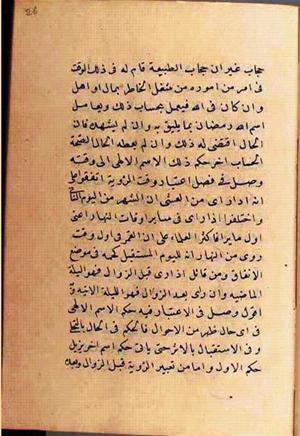 26
حجاب غير ان حجاب الطبيعة قام له فى ذلك الوقت
فى امر من اموره من شغل الخاطر بمال او اهل
وان كان فى الله فيعمل بحساب ذلك ويعامل
اسم الله رمضان بما يليق به وان لم يشهد فان
الحال اقتضى له ذلك وان لم يعطه الحال الصحة
الحساب اخر حكم ذلك الاسم الالهى الى وقته
وصل فى فصل اعتبار وقت الرؤية اتفقوا على
انه اذا راى من العشى ان الشهر من اليوم الثانى
واختلفوا اذا راى فى سائر اوقات النهار اعنى
اول ما يرا فاكثر العلماء على ان القمر فى اول وقت
روى من النهار انه لليوم المستقبل كحكمه فى موضع
الاتفاق ومن قائل اذا راى قبل الزوال فهو لليلة
الماضية وان راى بعد الزوال فهو لليلة الاتية وبه
اقول وصل فى الاعتبار فيه حكم الاسم الالهى
فى اى حال ظهر من الاحوال فالحكم فى الحال بالتجلى
وفى الاستقبال بالاثر حتى ياتى حكم اسم اخر يزيل
حكم الاول واما من تعبير الرؤية قبل الزوال وبعد